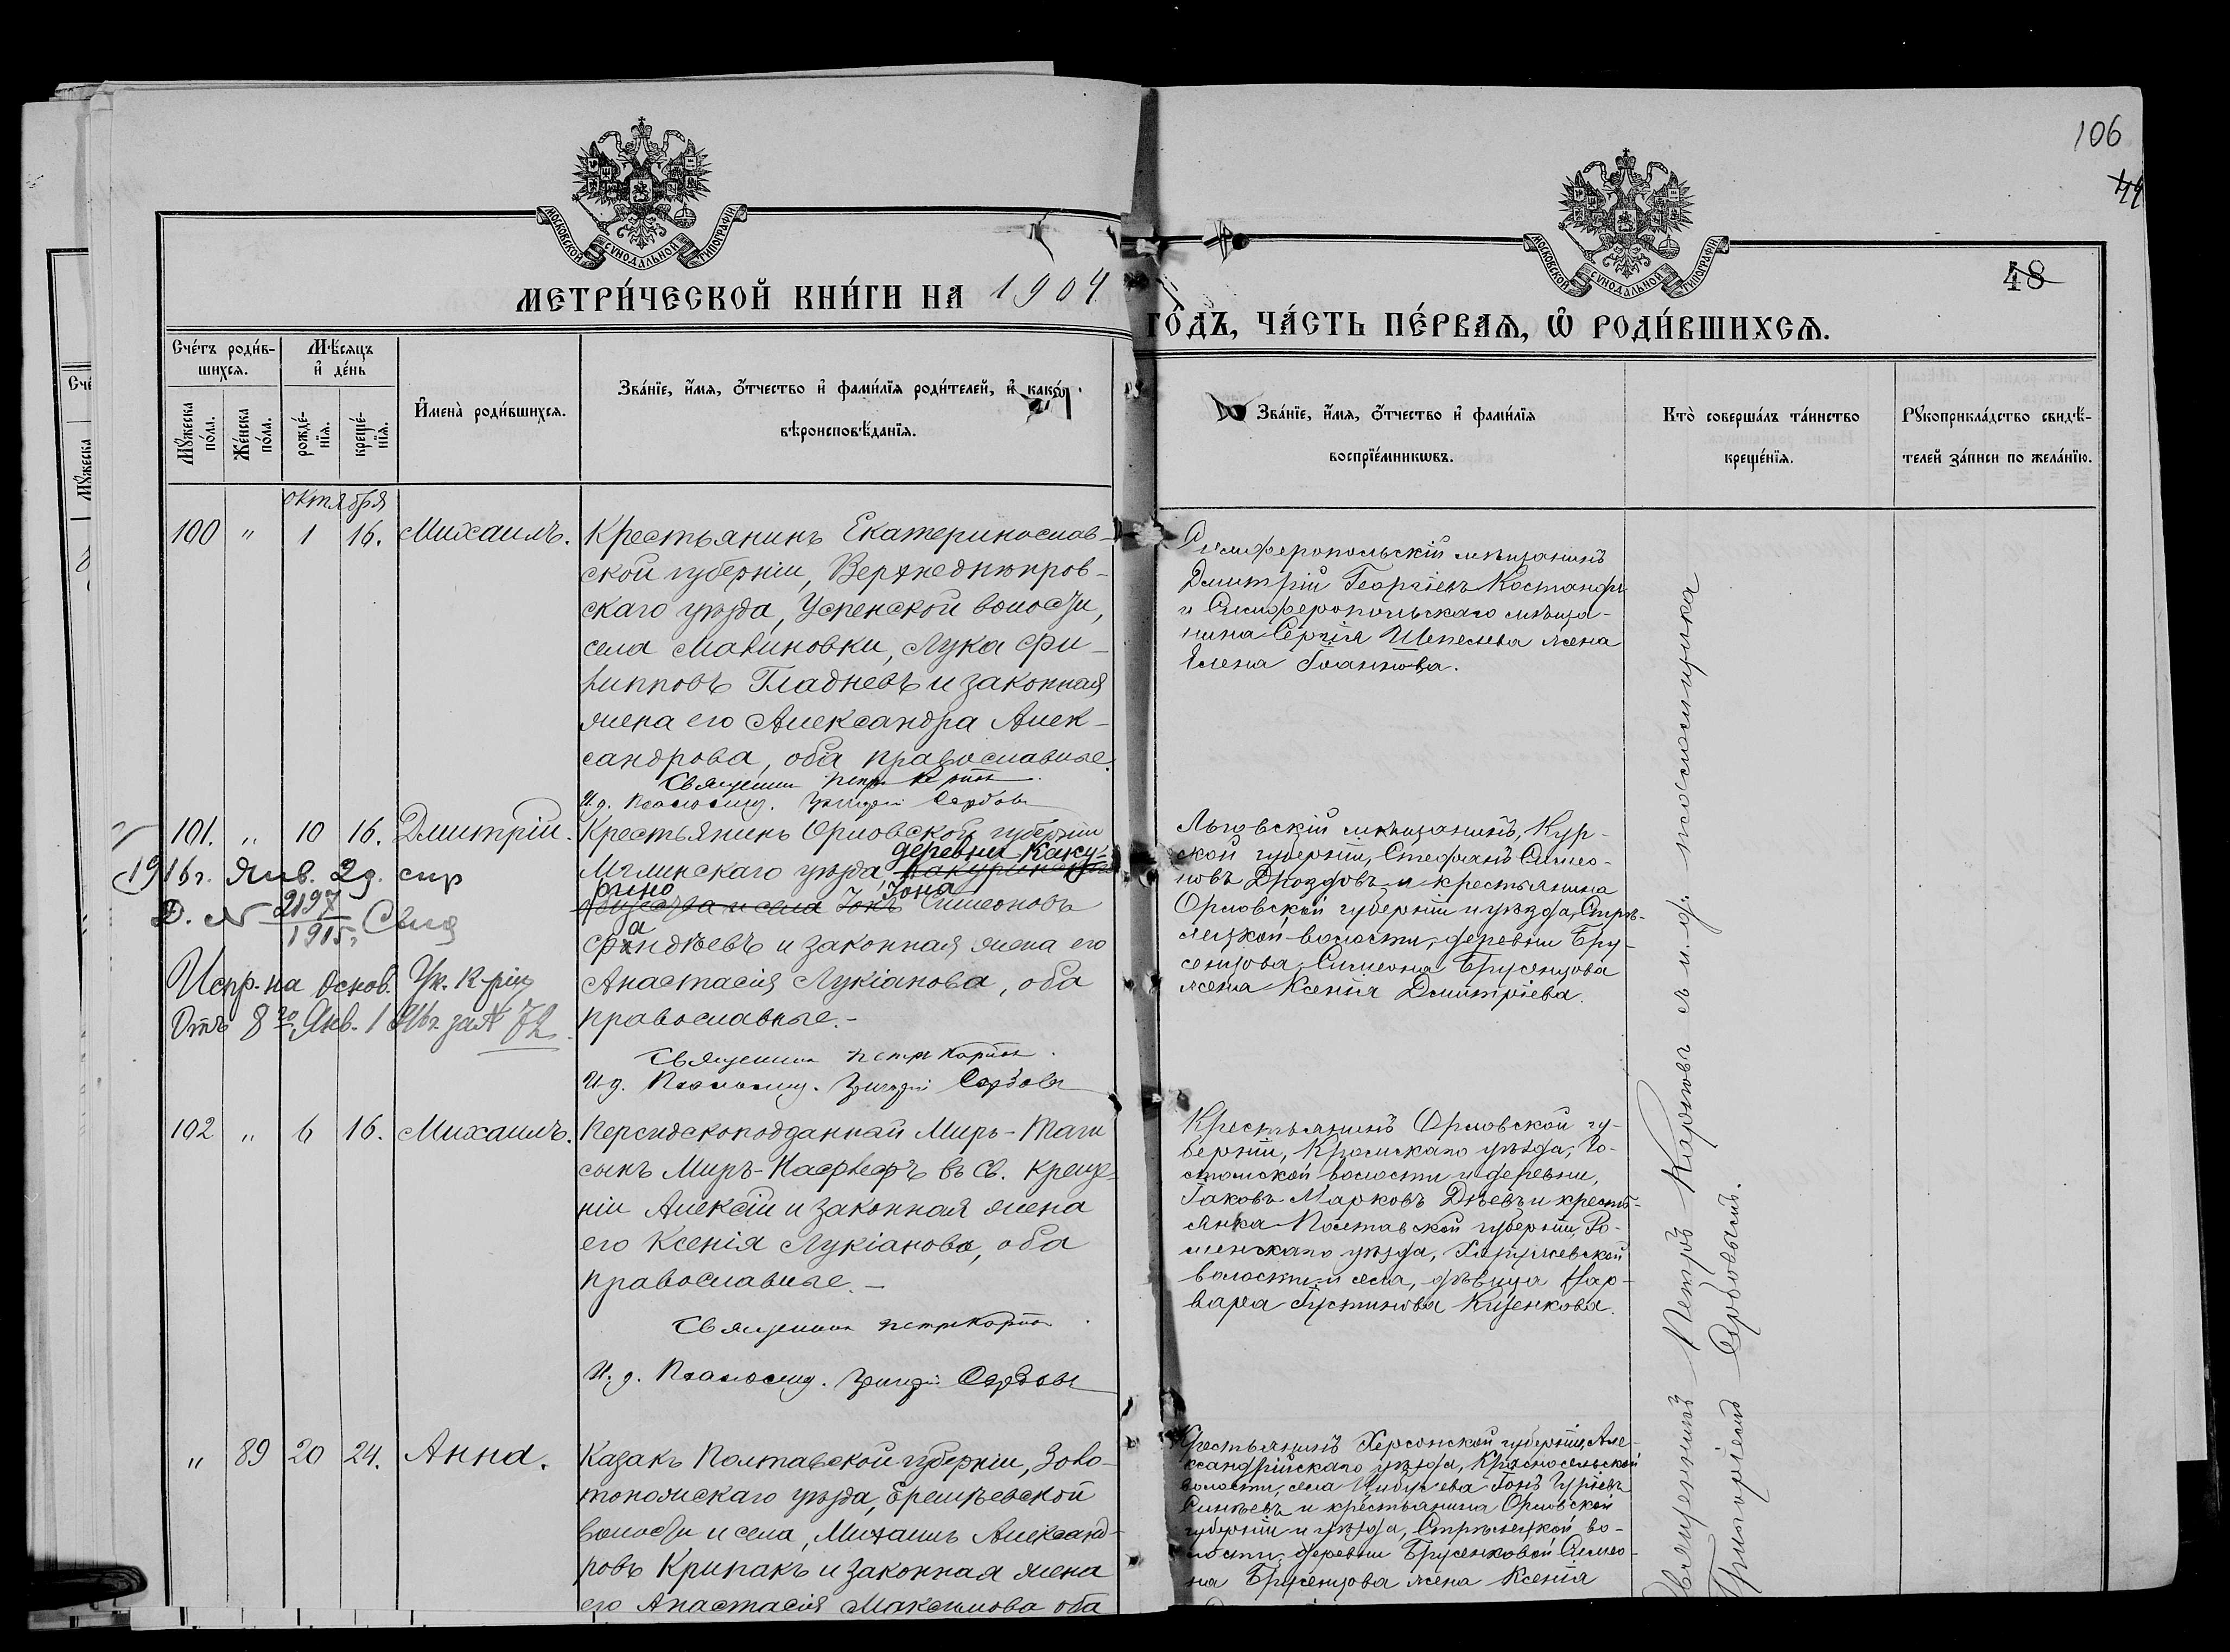 106
44
48
МОСКОВСКОЙ СѴНОДАЛЬНОЙ ТИПОГРАФІИ
МОСКОВСКОЙ СѴНОДАЛЬНОЙ ТИПОГРАФІИ
МЕТРИ́ЧЕСКОЙ КНИ́ГИ НА 1904
ГО́ДЪ, ЧА́СТЬ ПЕ́РВАЯ, Ѽ РОДИ́ВШИХСЯ.
Сче́тъ роди́в-
шихся.
Мѣ́сяцъ
и҆ де́нь
Мꙋ́жеска
по́ла.
Же́нска
по́ла.
рожде́-
нїя.
креще́-
нїя.
И҆мена̀ роди́вшихся.
Зва́нїе, и҆́мя, ѻ҆́тчество и҆ фами́лїя роди́телей, и҆ како́гѡ
вѣроисповѣ́данїя.
Зва́нїе, и҆́мя, ѻ҆́тчество и҆ фами́лїя
воспрїе́мникѡвъ.
Кто̀ соверша́лъ та́инство
креще́нїя.
Рꙋкоприкла́дство свидѣ́-
телей за́писи по жела́нїю.
октября
100 " 1 16. Михаилъ.
Крестьянинъ Екатеринослав-
ской губерніи, Верхнеднѣпров-
скаго уѣзда, Успенской волости,
села Малиновки, Лука Фи-
липповъ Гладневъ и законная
жена его Александра Алек-
сандрова, оба православные.
Священникъ Петръ Карповъ
И. д. Псаломщ. Григорій Сербовъ
Симферопольскій мѣщанинъ
Дмитрій Георгіевъ Костанди
и Симферопольскаго мѣща-
нина Сергія Шепелева жена
Елена Іоаннова.
101. " 10 16. Дмитрій.
Крестьянинъ Орловской губерніи
деревни Каку-
Мглинскаго уѣзда,
рино Іона
общества и села Симеоновъ
Фандѣевъ и законная жена его
Анастасія Лукіанова, оба
православные.-
Священникъ Петръ Карповъ
И. д. Псаломщ. Григорій Сербовъ
1916 г. Янв. 2 д.
Д. N 2197
1915 г.
Испр. на основ. Ук. К-ріи
Отъ 8го Янв. 1916 г. за № 72
Льговскій мѣщанинъ, Кур-
ской губерніи, Стефанъ Симео-
новъ Дроздовъ и крестьянина
Орловской губерніи и уѣзда, Стрѣ-
лецкой волости, деревни Бру-
сенцова, Симеона Брусенцова
жена Ксенія Дмитріева.
102 " 6 16. Михаилъ.
Персидскоподданный Миръ-Таги
сынъ Миръ- въ св. креще-
ніи Алексій и законная жена
его Ксенія Лукіанова, оба
православные.-
Священникъ Петръ Карповъ
И. д. Псаломщ. Григорій Сербовъ
Крестьянинъ Орловской гу-
берніи, Кромскаго уѣзда, Го-
стомской волости и деревни,
Іаковъ Марковъ Дѣевъ и кресть-
янка Полтавской губерніи, Ро-
менскаго уѣзда,
волости и села, дѣвица Вар-
вара Іустинова Кищенкова.
" 89 20 24. Анна.
Казакъ Полтавской губерніи, Золо-
тоношскаго уѣзда, Еремѣевской
волости и села, Михаилъ Александ-
ровъ Крипакъ и законная жена
его Анастасія Максимова оба
Крестьянинъ Херсонской губерніи, Але-
ксандрійскаго уѣзда, Красносельской
волости, села Цибулева Іонъ Гуріевъ
Синѣевъ и крестьянина Орловской
губерніи и уѣзда, Стрѣлецкой во-
лости, деревни Брусенковой Симео-
на Брусенцова жена Ксенія
Священникъ Петръ Карповъ съ и. д. псаломщика
Григоріемъ Сербовымъ.